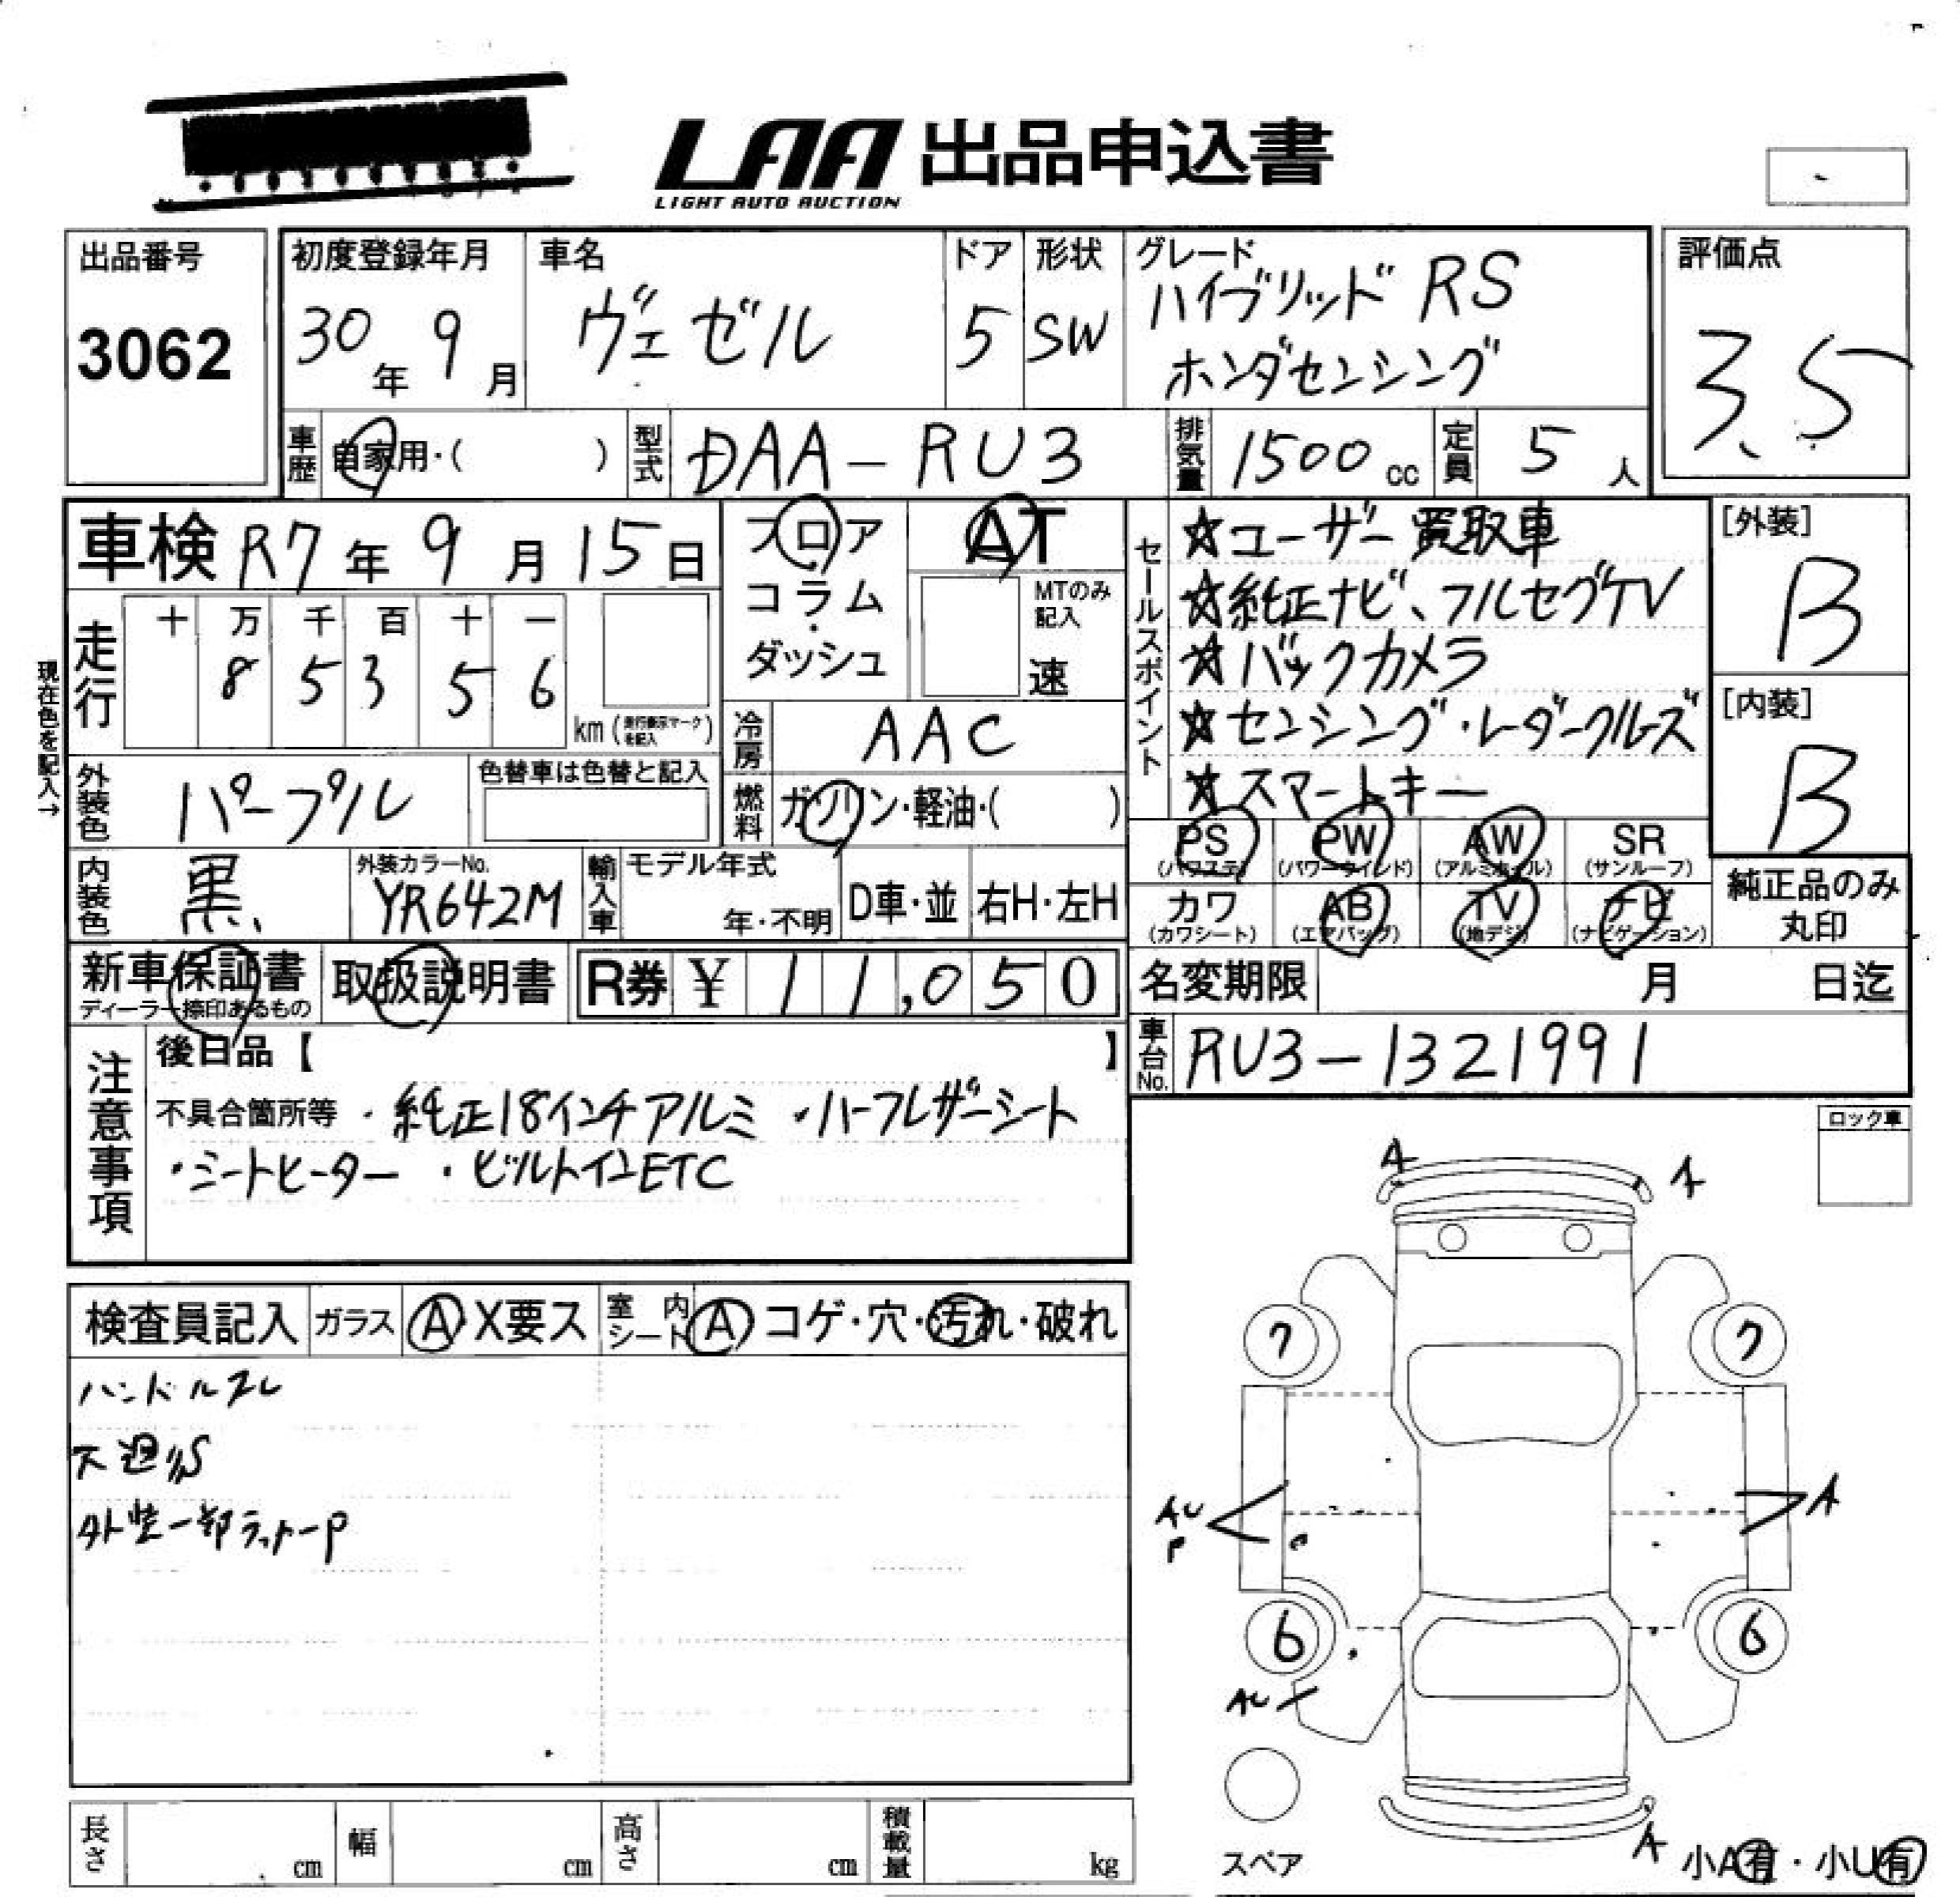 LAA 出品申込書
LIGHT AUTO AUCTION
出品番号
3062
初度登録年月
30年 9月
車名
ヴェゼル
ドア
5
形状
SW
グレード
ハイブリッド RS
ホンダセンシング
評価点
3.5
車歴
自家用・( )
型式
DAA-RU3
排気量
1500cc
定員
5人
車検 R7年 9月 15日
フロア
コラム
・
ダッシュ
AT
MTのみ
記入
速
セールスポイント
☆ユーザー買取車
☆純正ナビ、フルセグTV
☆バックカメラ
☆センシング・レーダークルーズ
☆スマートキー
[外装]
B
[内装]
B
現在色を記入→
走行
十 万 千 百 十 一
8 5 3 5 6
km(走行表示マークを記入)
冷房
AAC
外装色
パープル
色替車は色替と記入
燃料
ガソリン・軽油・( )
内装色
黒
外装カラーNo.
YR642M
輸入車
モデル年式
年・不明
D車・並
右H・左H
PS
(パワステ)
PW
(パワーウインド)
AW
(アルミホイル)
SR
(サンルーフ)
カワ
(カワシート)
AB
(エアバッグ)
TV
(地デジ)
ナビ
(ナビゲーション)
純正品のみ
丸印
新車保証書
ディーラー捺印あるもの
取扱説明書
R券 ¥ 11,050
名変期限 月 日迄
車台No.
RU3-1321991
注意事項
後日品【 】
不具合箇所等 ・純正18インチアルミ ・ハーフレザーシート
・シートヒーター ・ビルトインETC
ロック車
検査員記入
ガラス
A X要ス
室内
シート
A コゲ・穴・汚れ・破れ
ハンドルスレ
外装一部
A
A
7
7
AU
P
A
6
6
AU
A
スペア
小A有・小U有
長さ cm
幅 cm
高さ cm
積載量 kg